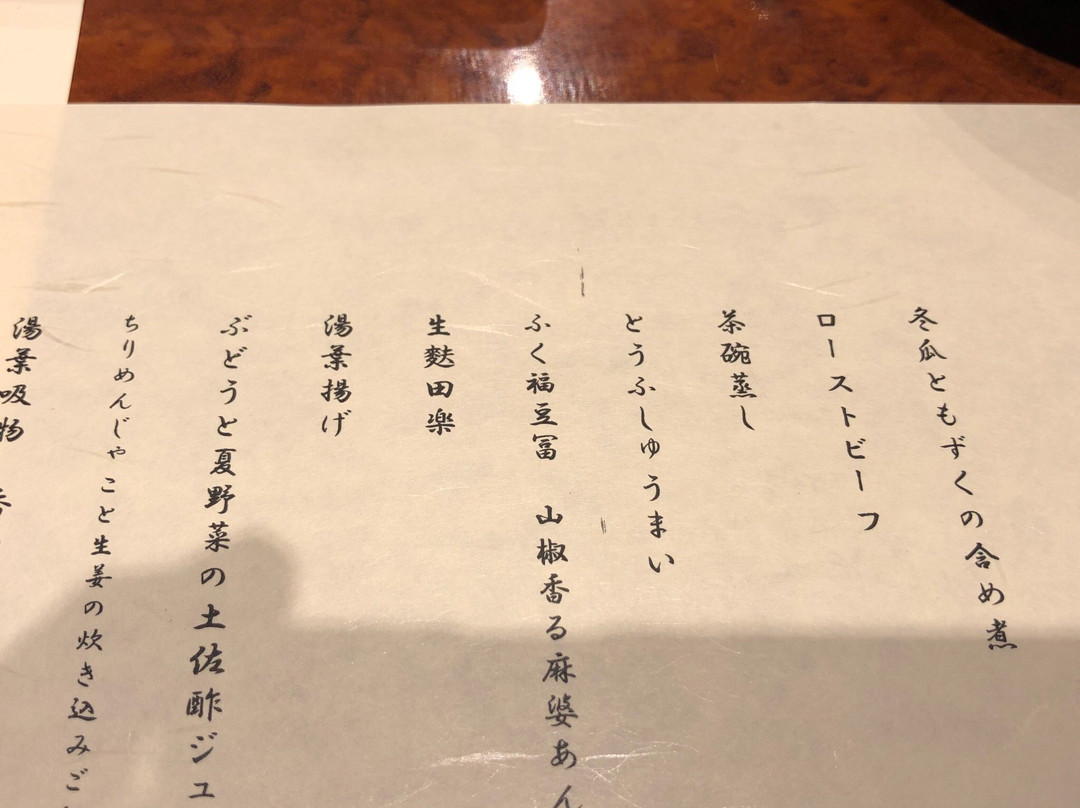 冬瓜ともずくの含め煮
ローストビーフ
茶碗蒸し
とうふしゅうまい
ふく福豆冨　山椒香る麻婆あん
生麩田楽
湯葉揚げ
ぶどうと夏野菜の土佐酢ジュ
ちりめんじゃこと生姜の炊き込みご
湯葉吸物